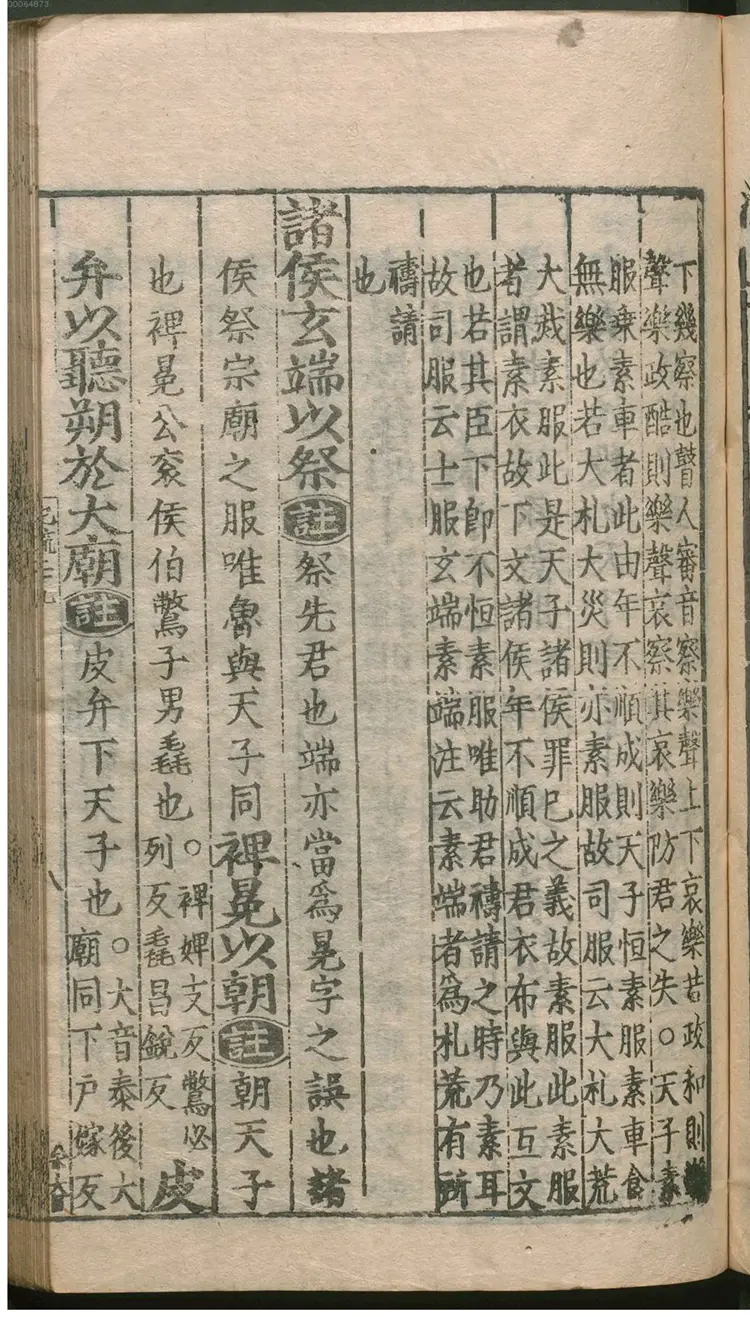 00064873
下幾察也瞽人審音察樂聲上下哀樂若政和則樂
聲樂政酷則樂聲哀察其哀樂防君之失○天子素
服乘素車者此由年不順成則天子恒素服素車食
無樂也若大札大災則亦素服故司服云大札大荒
大烖素服此是天子諸侯罪已之義故素服此素服
者謂素衣故下文諸侯年不順成君衣布與此互文
也若其臣下卽不恒素服唯助君禱請之時乃素耳
故司服云士服玄端素端注云素端者爲札荒有所
禱請
也
諸侯玄端以祭註祭先君也端亦當爲冕字之誤也諸
侯祭宗廟之服唯魯與天子同裨冕以朝註朝天子
也裨冕公衮侯伯鷩子男毳也○裨婢支反鷩必
列反毳昌銳反皮
弁以聽朔於大廟註皮弁下天子也○大音泰後大
廟同下戶嫁反